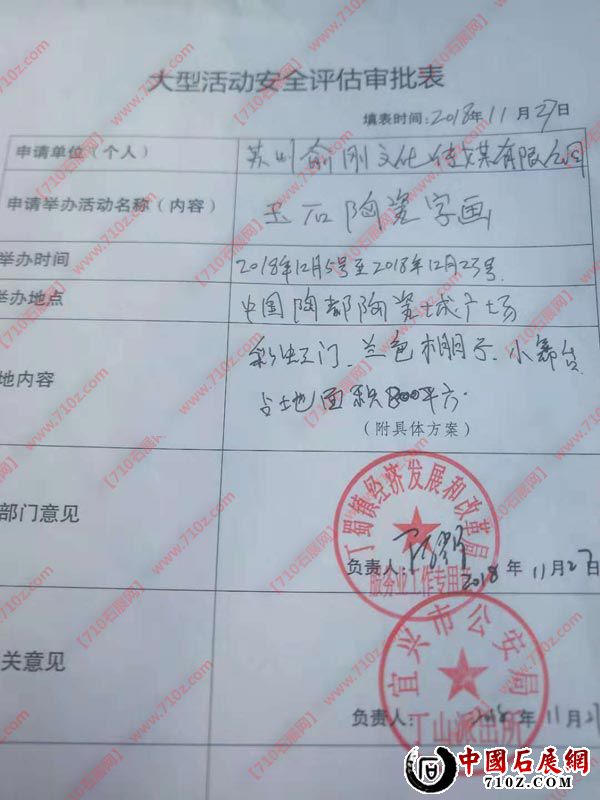 大型活动安全评估审批表
填表时间:2018年11月27日
申请单位(个人) 苏州俞刚文化传媒有限公司
申请举办活动名称(内容) 玉石陶瓷字画
举办时间 2018年12月5号至2018年12月23号
举办地点 中国陶都陶瓷城广场
地内容 彩虹门、兰色棚子、小舞台
占地面积800平方.
(附具体方案)
丁蜀镇经济发展和改革局
部门意见
负责人: 2018年11月27日
服务业工作专用章
宜兴市公安局
关意见
负责人: 2018年11月27
丁山派出所
中國石展網
www.710z.com
【710石展网】www.710z.com